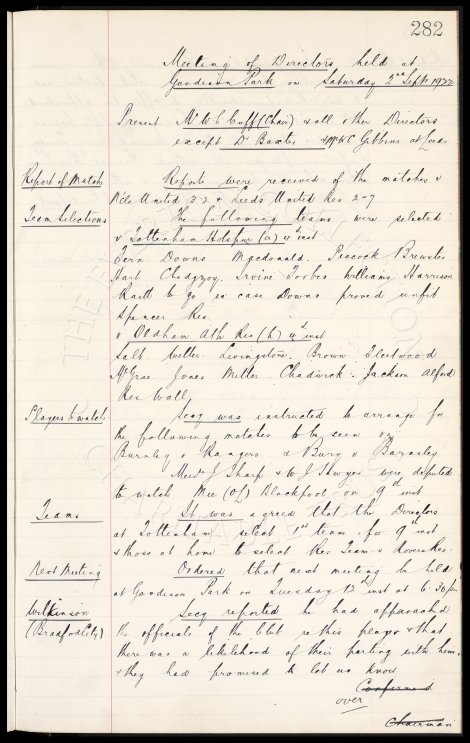 282
Meeting of Directors held at
Goodison Park on Saturday 2nd Sept 1922
Present Mr W C Cuff (Chair) & all other Directors
except Dr Baxter & Mr W C Gibbins at Leeds
Report of Matches
Reports were received of the matches v
United 3-2 & Leeds United Res 2-0
Team Selections
The following teams were selected
v Tottenham Hotspur (a) 4th inst
Fern Downs Macdonald. Peacock Brewster
Hart Chedgzoy. Irvine Forbes Williams Harrison
Raitt to go in case Downs proved unfit
Spencer Res
v Oldham Ath Res (h) 4th inst
Salt. Livingstone. Brown. Fleetwood
McGrae. Jones Miller. Chadwick. Jackson Alford
Res Wall
Players to watch
Secy was instructed to arrange for
the following matches to be seen viz
Burnley v Rangers & Bury v Barnsley
Messrs J Sharp & W J Sawyer were deputed
to watch Blackpool on 9th inst
Teams
It was agreed that the Directors
at Tottenham select 1st team for 9th inst
& those at home to select Res team v Res.
Next Meeting
Ordered that next meeting be held
at Goodison Park on Tuesday inst at 6.30 pm
Wilkinson
(Bradford City)
Secy reported he had approached
the officials of the Club re this player & that
there was a likelihood of their parting with him,
& they had promised to let us know
Confirmed
over
Chairman